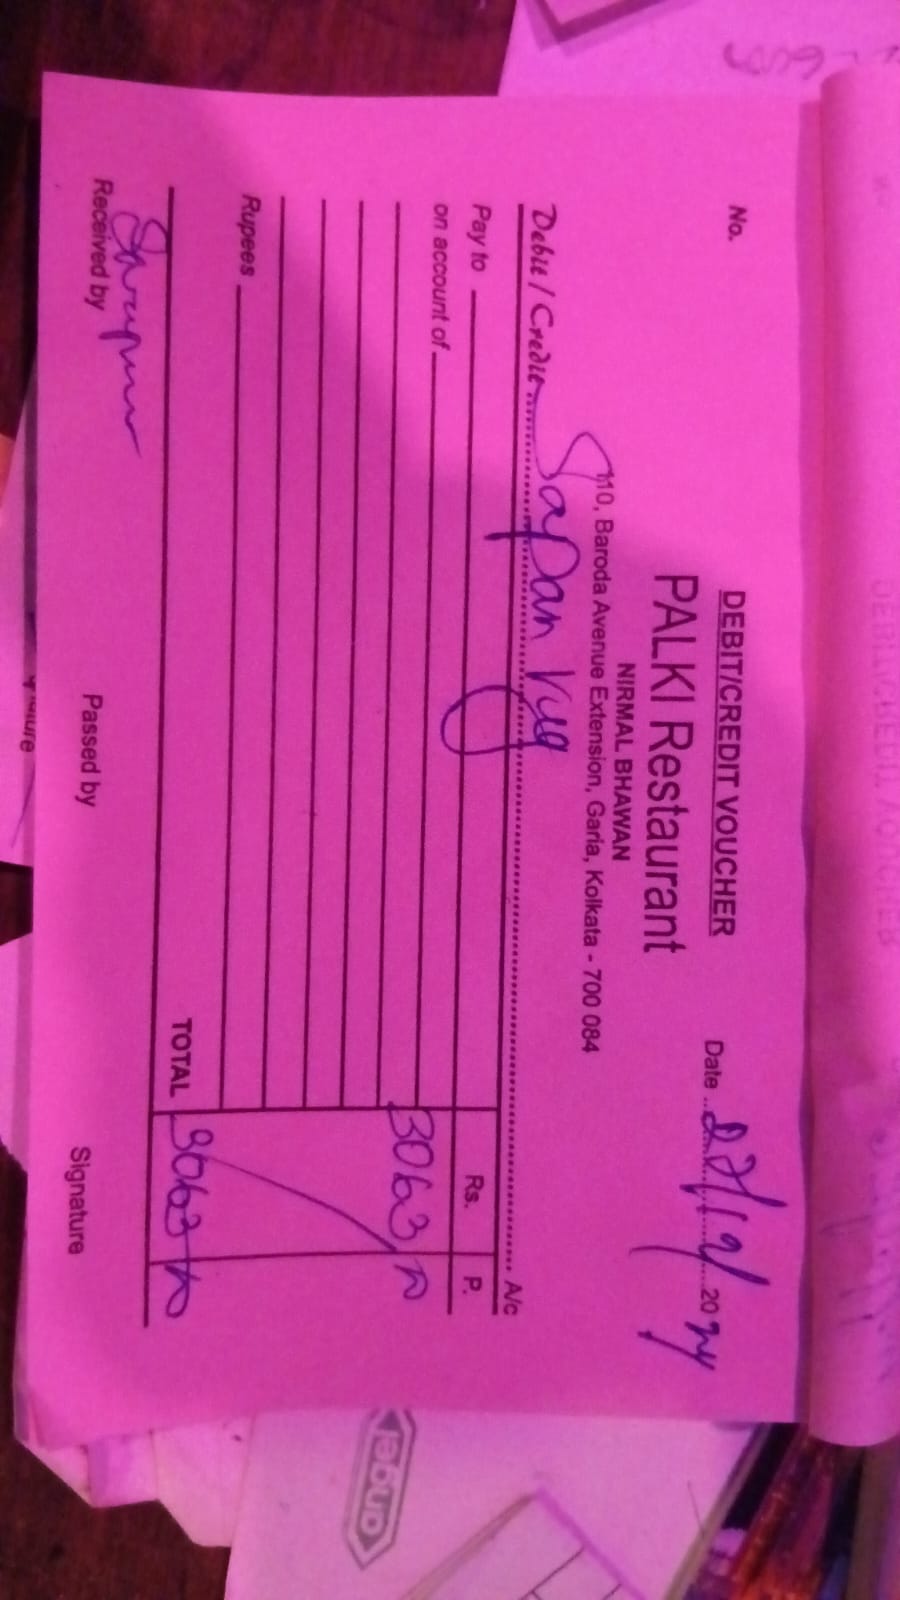 DEBIT/CREDIT VOUCHER
No.
Date 27/12/2024
PALKI Restaurant
NIRMAL BHAWAN
110, Baroda Avenue Extension, Garia, Kolkata - 700 084
Debit / Credit Sapan A/c
Pay to
Rs. P.
on account of
3063
Rupees
TOTAL 3063
Received by Passed by Signature